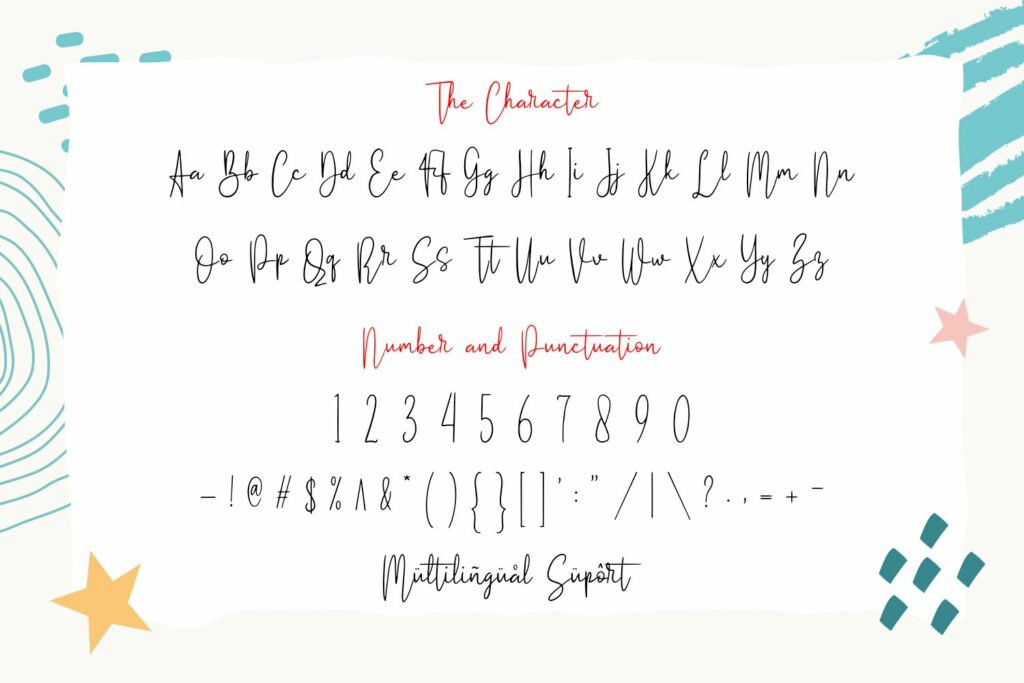 The Character
Aa Bb Cc Dd Ee Ff Gg Hh Ii Jj Kk Ll Mm Nn
Oo Pp Qq Rr Ss Tt Uu Vv Ww Xx Yy Zz
Number and Punctuation
1 2 3 4 5 6 7 8 9 0
– ! @ # $ % Λ & * ( ) { } [ ] ' : ” / | \ ? . , = + –
Mültiliñgüål Süpôrt